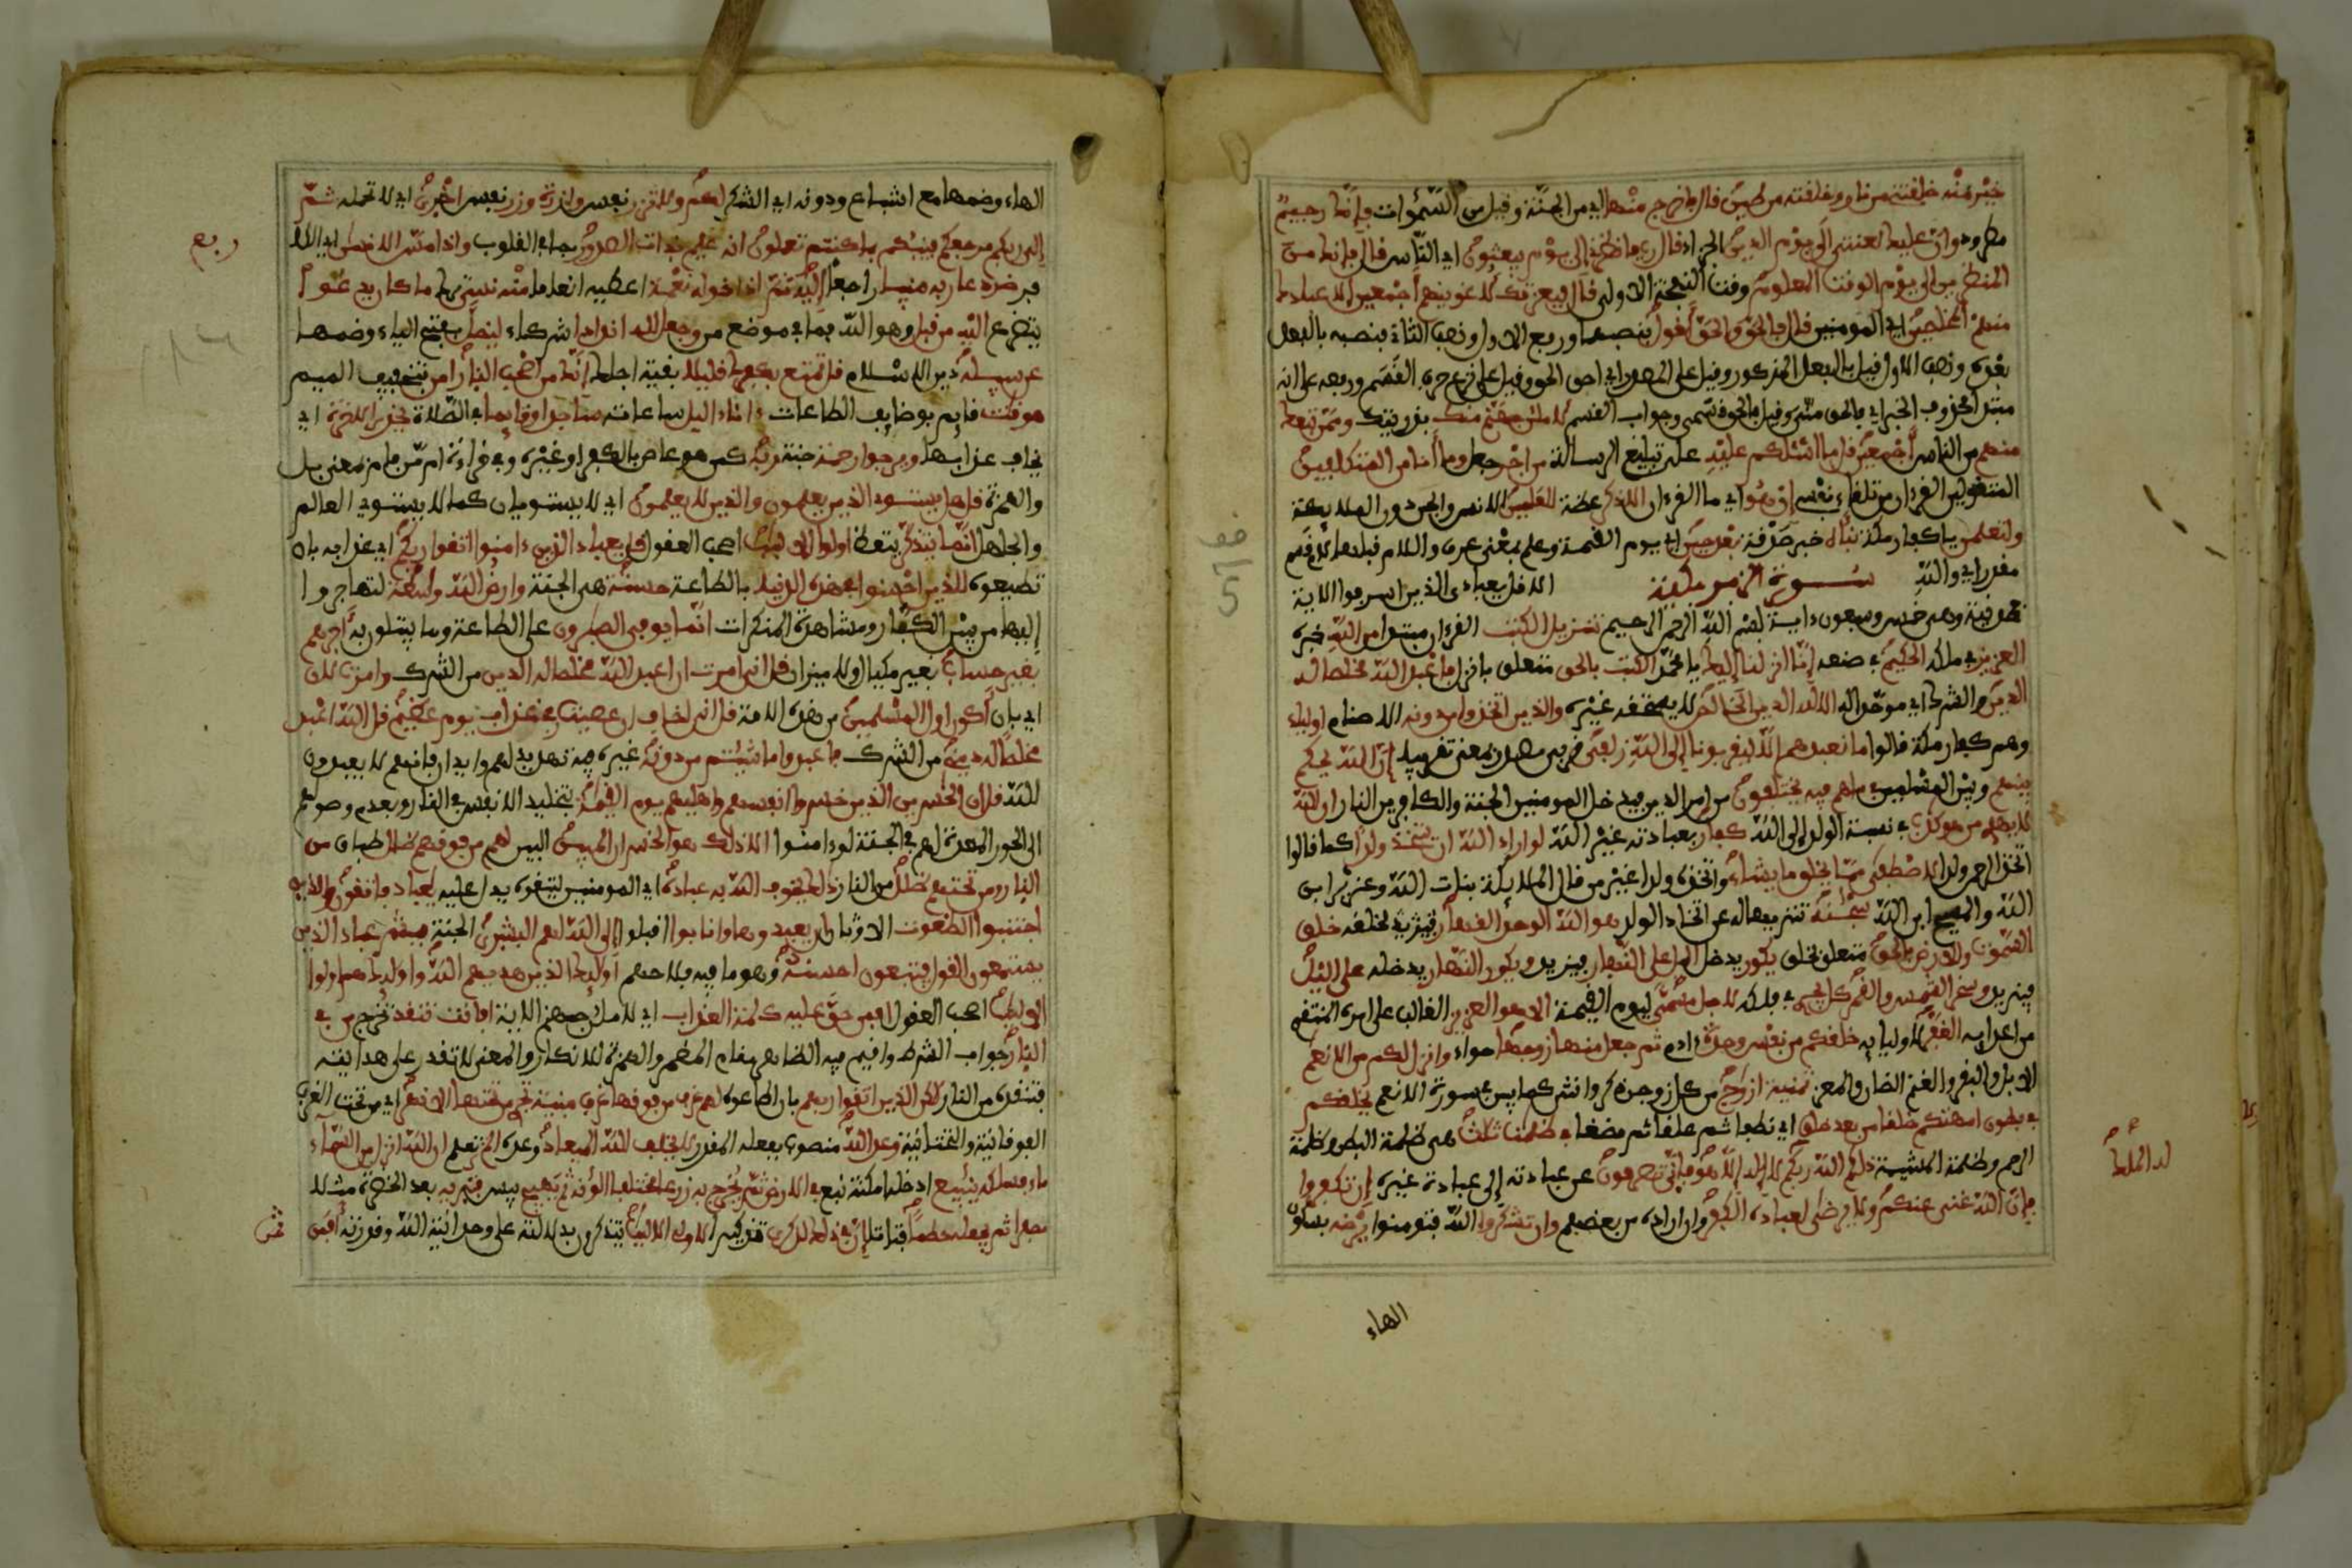 خَيْر منه خلقتني من نار وخلقته من طين قال فاخرج منها اي من الجنة وقيل من السموات فانك رجيم
مطرود وان عليك لعنتي الى يوم الدين الجزاء قال رب فانظرني الى يوم يبعثون اي الناس قال فانك من
المنظرين الى يوم الوقت المعلوم وقت النفخة الاولى قال فبعزتك لاغوينهم اجمعين الا عبادك
منهم المخلصين اي المومنين قال فالحق والحق اقول بنصبهما ورفع الاول ونصب الثاني فنصبه بالفعل
بعده ونصب الاول قيل بالفعل المذكور وقيل على المصدر اي احق الحق وقيل على نزع حرف القسم ورفعه على انه
مبتدا محذوف الخبر اي فالحق مني وقيل فالحق قسمي وجواب القسم لاملان جهنم منك بذريتك وممن تبعك
منهم من الناس اجمعين قل ما اسئلكم عليه على تبليغ الرسالة من اجر جعل وما انا من المتكلفين
المتقولين القرءان من تلقاء نفسي ان هو اي ما القرءان الا ذكر عظة للعلمين للانس والجن دون الملايكة
ولتعلمن يا كفار مكة نباه خبر صدقه بعد حين اي يوم القيمة وعلم بمعنى عرف واللام قبلها لام قسم
مقدر اي والله سورة الزمر مكية الا قل يعبادي الذين اسرفوا الاية
فمدنية وهي خمس وسبعون ءاية بسم الله الرحمن الرحيم تنزيل الكتب القرءان مبتدا من الله خبره
العزيز في ملكه الحكيم في صنعه انا انزلنا اليك يا محمد الكتب بالحق متعلق بانزل فاعبد الله مخلصا له
الدين من الشرك اي موحدا له الا لله الدين الخالص لا يستحقه غيره والذين اتخذوا من دونه الاصنام اولياء
وهم كفار مكة قالوا ما نعبدهم الا ليقربونا الى الله زلفى قربى مصدر بمعنى تقريبا ان الله يحكم
بينهم وبين المسلمين في ما هم فيه يختلفون من امر الدين فيدخل المومنين الجنة والكافرين النار ان الله
لا يهدي من هو كذب في نسبة الولد الى الله كفار بعبادته غير الله لو اراد الله ان يتخذ ولدا كما قالوا
اتخذ الرحمن ولدا لاصطفى مما يخلق ما يشاء واتخذه ولدا غير من قال الملايكة بنات الله وعزير ابن
الله والمسيح ابن الله سبحنه تنزيها له عن اتخاذ الولد هو الله الوحد القهار خلق
السموت والارض بالحق متعلق بخلق يكور يدخل اليل على النهار فيزيد ويكور النهار يدخله على اليل
فيزيد وسخر الشمس والقمر كل يجري في فلكه لاجل مسمى ليوم القيمة الا هو العزيز الغالب على امره المنتقم
من اعدايه الغفر لاوليايه خلقكم من نفس وحدة ءادم ثم جعل منها زوجها حواء وانزل لكم من الانعم
الابل والبقر والغنم الضان والمعز ثمنية ازوج من كل زوجين ذكر وانثى كما بين في سورة الانعم يخلقكم
في بطون امهتكم خلقا من بعد خلق اي نطفا ثم علقا ثم مضغا في ظلمت ثلث هي ظلمة البطن وظلمة
الرحم وظلمة المشيمة ذلكم الله ربكم لا اله الا هو فانى تصرفون عن عبادته الى عبادة غيره ان تكفروا
فان الله غني عنكم ولا يرضى لعباده الكفر وان اراده من بعضهم وان تشكروا الله فتومنوا يرضه بسكون
له الملك
الهاء
الهاء وضمها مع اشباع ودونه اي الشكر لكم ولا تزر نفس وازرة وزر نفس اخرى اي لا تحمله ثم
الى ربكم مرجعكم فينبئكم بما كنتم تعملون انه عليم بذات الصدور بما في القلوب واذا مس الانسن اي الكافر
ربع
ضر دعا ربه منيبا راجعا اليه ثم اذا خوله نعمة اعطيه انعاما منه نسي ترك ما كان يدعوا
يتضرع اليه من قبل وهو الله فما في موضع من وجعل لله اندادا شركاء ليضل بفتح الياء وضمها
عن سبيله دين الاسلام قل تمتع بكفرك قليلا بقية اجلك انك من اصحب النار امن بتخفيف الميم
هو قنت قايم بوضايف الطاعات ءاناء اليل ساعاته ساجدا وقايما في الصلاة يحذر الاخرة اي
يخاف عذابها ويرجوا رحمة جنة ربه كمن هو عاص بالكفر او غيره وفي قراءة ام من فام بمعنى بل
والهمزة قل هل يستوي الذين يعلمون والذين لا يعلمون اي لا يستويان كما لا يستوي العالم
والجاهل انما يتذكر يتعظ اولوا الالبب اصحب العقول قل يعباد الذين ءامنوا اتقوا ربكم اي عذابه بان
تطيعوه للذين احسنوا في هذه الدنيا بالطاعة حسنة هي الجنة وارض الله وسعة لتهاجروا
اليها من بين الكفار ومشاهدة المنكرات انما يوفى الصبرون على الطاعة وما يبتلون به اجرهم
بغير حساب بغير مكيال ولا ميزان قل اني امرت ان اعبد الله مخلصا له الدين من الشرك وامرت لان
اي بان اكون اول المسلمين من هذه الامة قل اني اخاف ان عصيت ربي عذاب يوم عظيم قل الله اعبد
مخلصا له ديني من الشرك فاعبدوا ما شئتم من دونه غيره فيه تهديد لهم وايذان بانهم لا يعبدون
الله قل ان الخسرين الذين خسروا انفسهم واهليهم يوم القيمة بتخليد الانفس في النار وبعدم وصولهم
الى الحور المعدة لهم في الجنة لو ءامنوا الا ذلك هو الخسران المبين البين لهم من فوقهم ظلل طباق من
النار ومن تحتهم ظلل من النار ذلك يخوف الله به عباده اي المومنين ليتقوه يدل عليه يعباد فاتقون والذين
اجتنبوا الطغوت الاوثان ان يعبدوها وانابوا اقبلوا الى الله لهم البشرى بالجنة فبشر عباد الذين
يستمعون القول فيتبعون احسنه وهو ما فيه فلاحهم اوليك الذين هديهم الله واوليك هم اولوا
الالبب اصحب العقول افمن حق عليه كلمة العذاب اي لاملان جهنم الاية افانت تنقذ تخرج من في
النار جواب الشرط واقيم فيه الظاهر مقام المضمر والهمزة للانكار والمعنى لا تقدر على هدايته
فتنقذه من النار لكن الذين اتقوا ربهم بان اطاعوه لهم غرف من فوقها غرف مبنية تجري من تحتها الانهر اي من تحت الغرف
الفوقانية والتحتانية وعد الله منصوب بفعله المقدر لا يخلف الله الميعاد وعده الم تعلم ان الله انزل من السماء
ماء فسلكه ينبيع ادخله امكنة نبع في الارض ثم يخرج به زرعا مختلفا الونه ثم يهيج ييبس فتريه بعد الخضرة مثلا
مصفرا ثم يجعله حطما فتاتا ان في ذلك لذكرى تذكيرا لاولي الالبب يتذكرون به لدلالته على وحدانية الله وقدرته افمن
ثمن